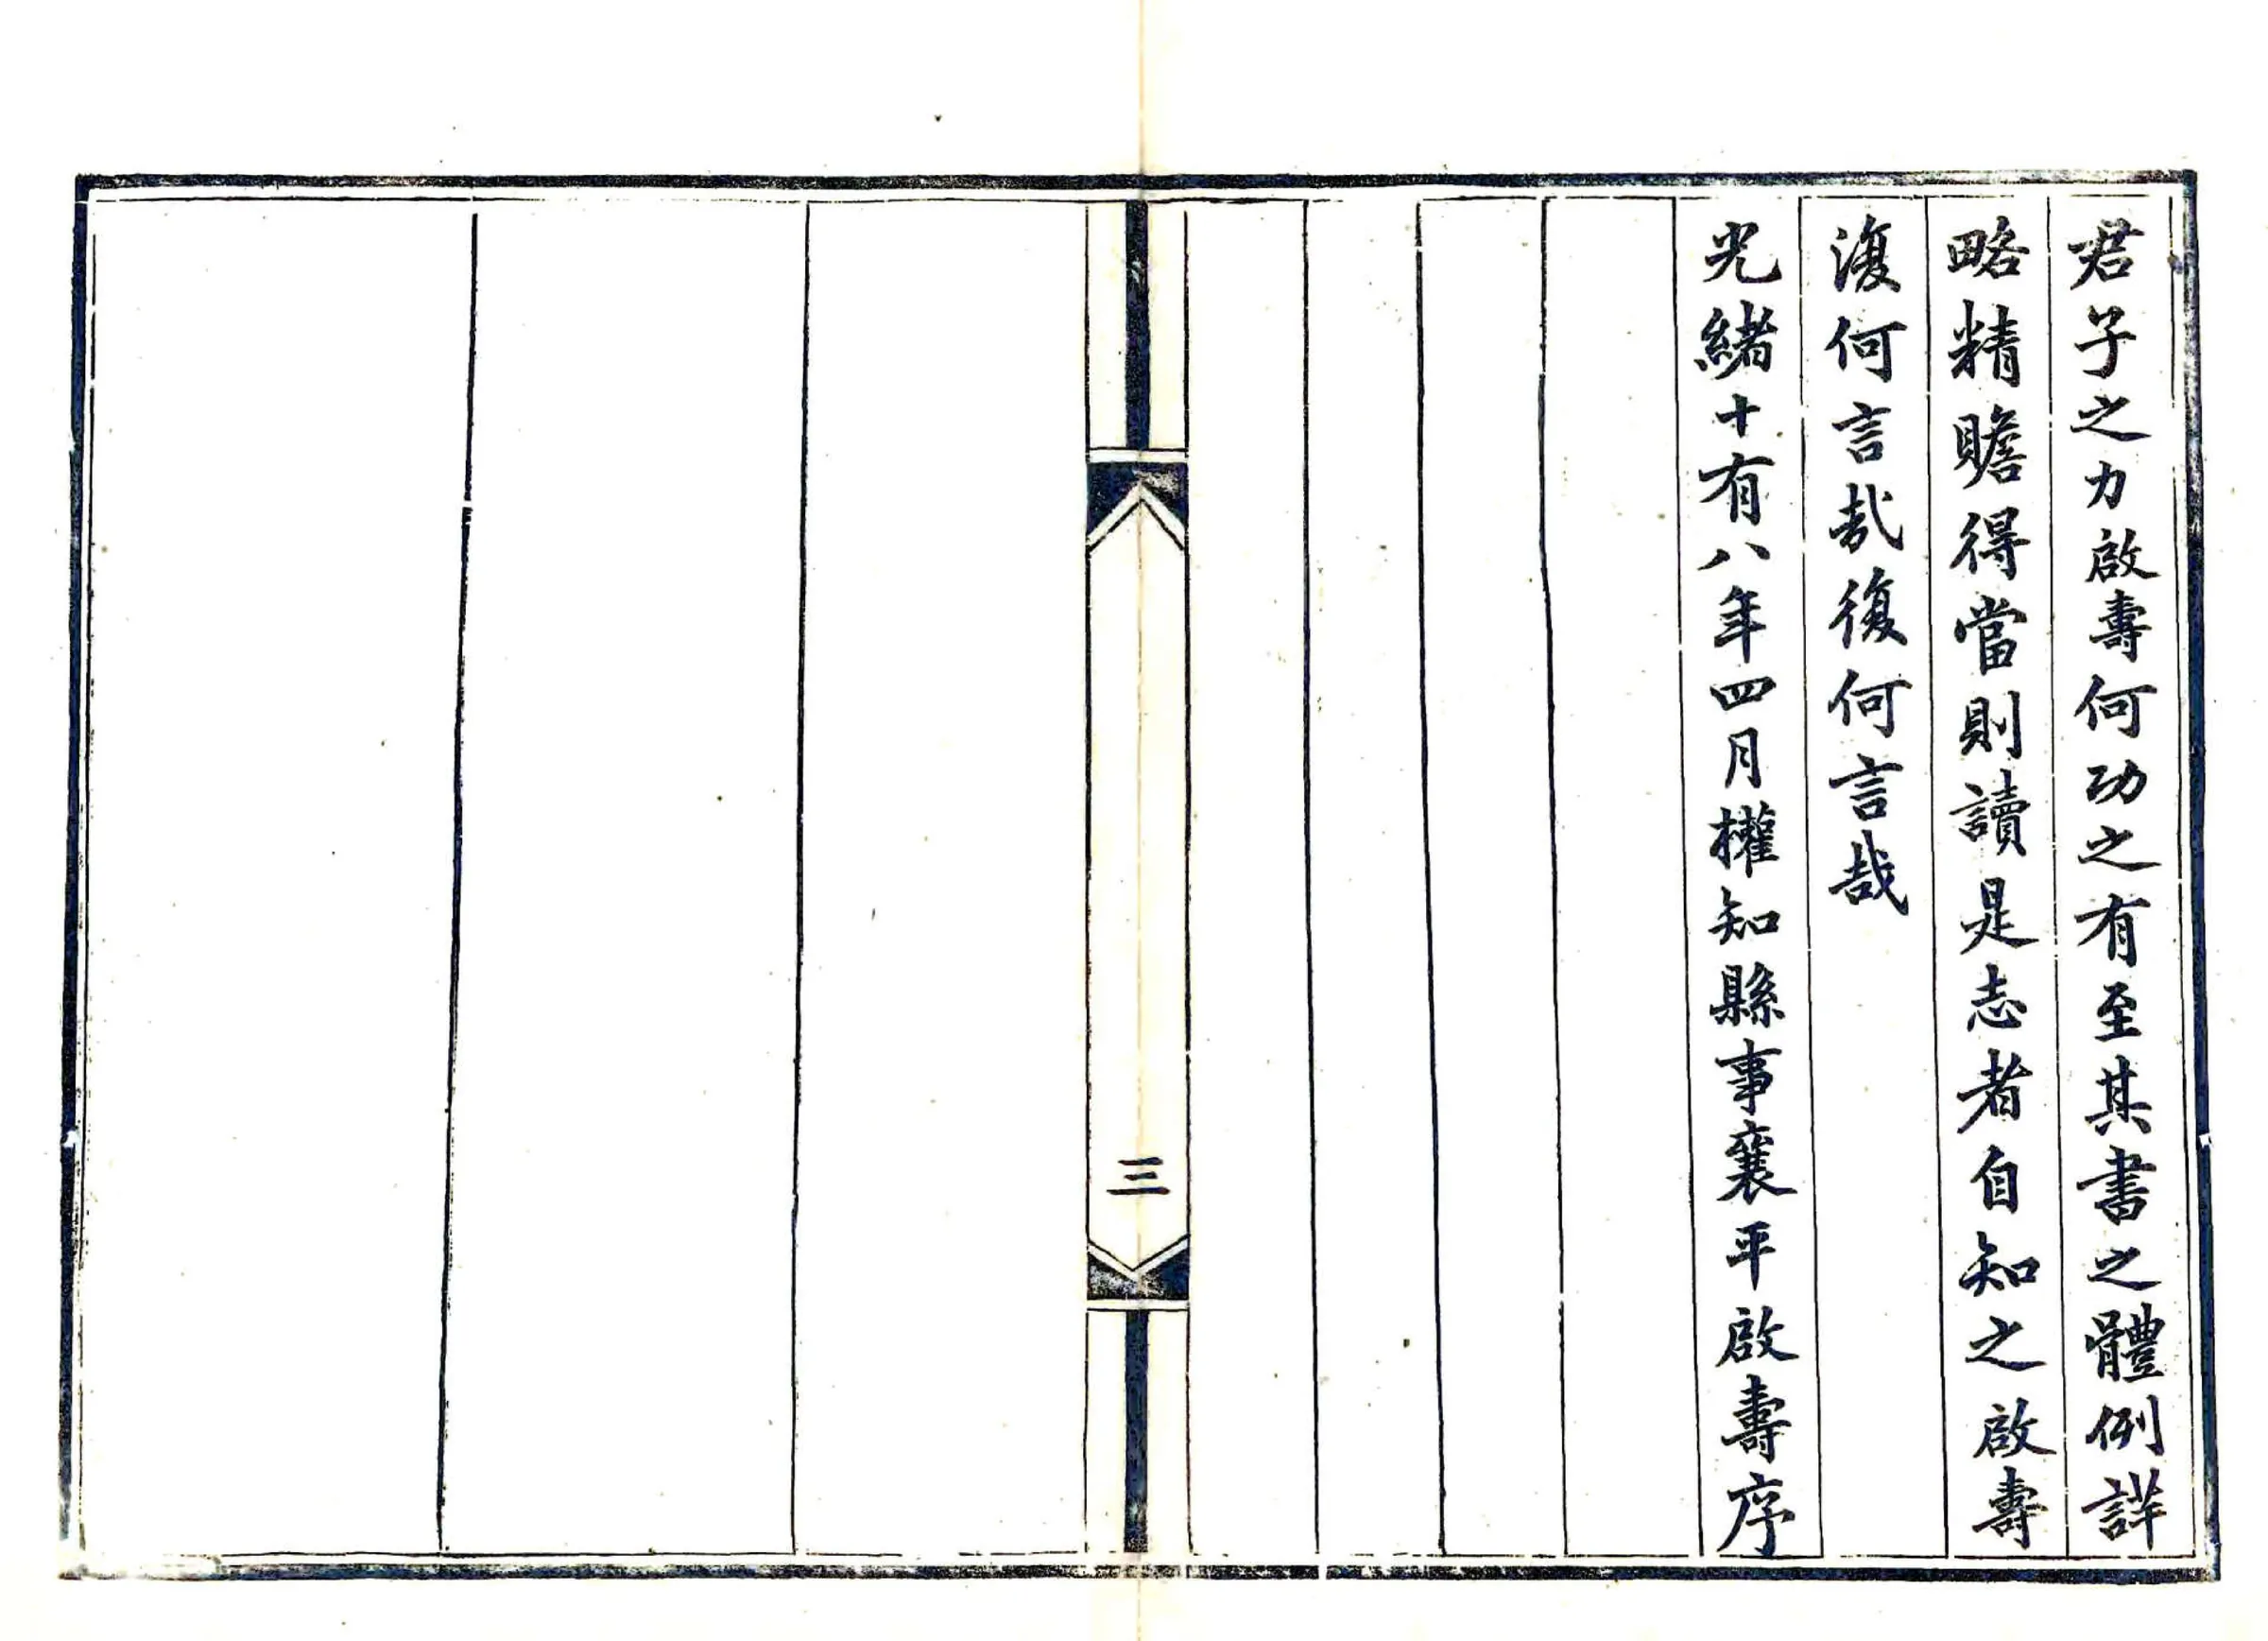 君子之力啟壽何功之有至其書之體例詳
略精贍得當則讀是志者自知之啟壽
復何言哉復何言哉
光緒十有八年四月權知縣事襄平啟壽序
三